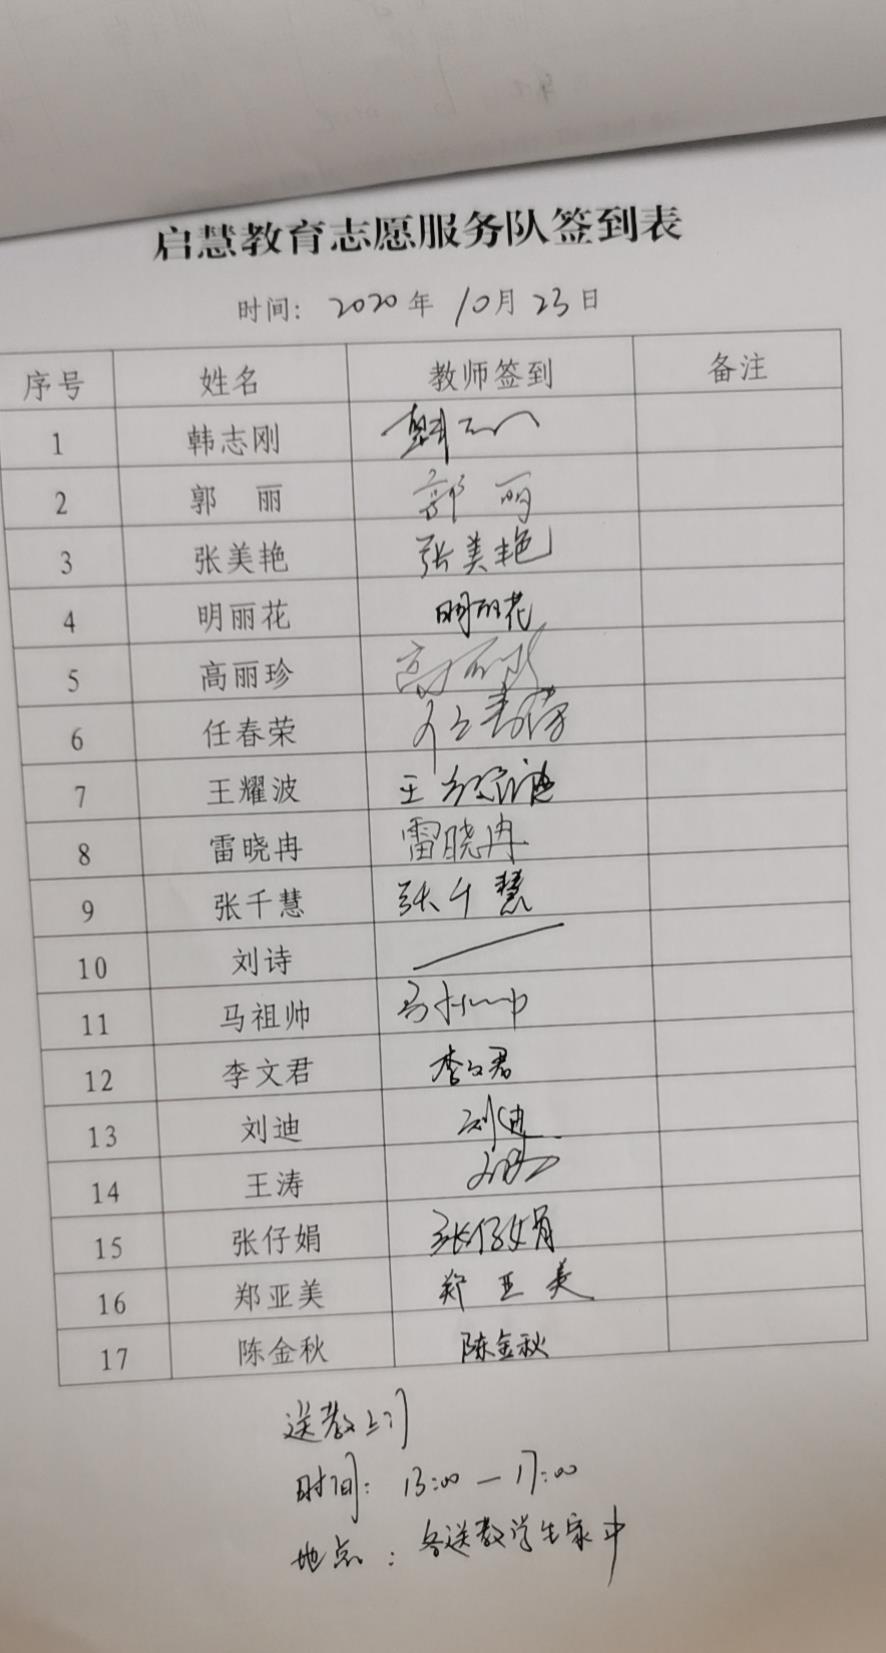 启慧教育志愿服务队签到表
时间: 2020年 10月 23日
序号 姓名 教师签到 备注
1 韩志刚 韩志刚
2 郭 丽 郭 丽
3 张美艳 张美艳
4 明丽花 明丽花
5 高丽珍 高丽珍
6 任春荣 任春荣
7 王耀波 王
8 雷晓冉 雷晓冉
9 张千慧 张千慧
10 刘诗
11 马祖帅 马祖帅
12 李文君 李文君
13 刘迪 刘迪
14 王涛
15 张仔娟 张仔娟
16 郑亚美 郑亚美
17 陈金秋 陈金秋
送教上门
时间: 13:00 — 17:00
地点: 各送教学生家中